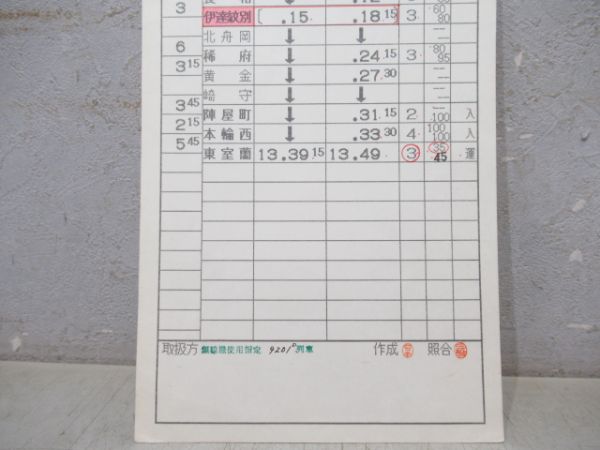 3
伊達紋別 .15. .18 15 3. 60 80
北舟岡 ↓ ↓
6 稀府 ↓ .24.15 3. 80 95
3 15 黄金 ↓ .27.30
崎守 ↓ ↓
3 45 陣屋町 ↓ .31.15 2 100 入
2 15 本輪西 ↓ .33.30 4. 100 100 入
5 45 東室蘭 13.39 15 13.49. 3 35 45 運
取扱方 9201D列車 作成 照合